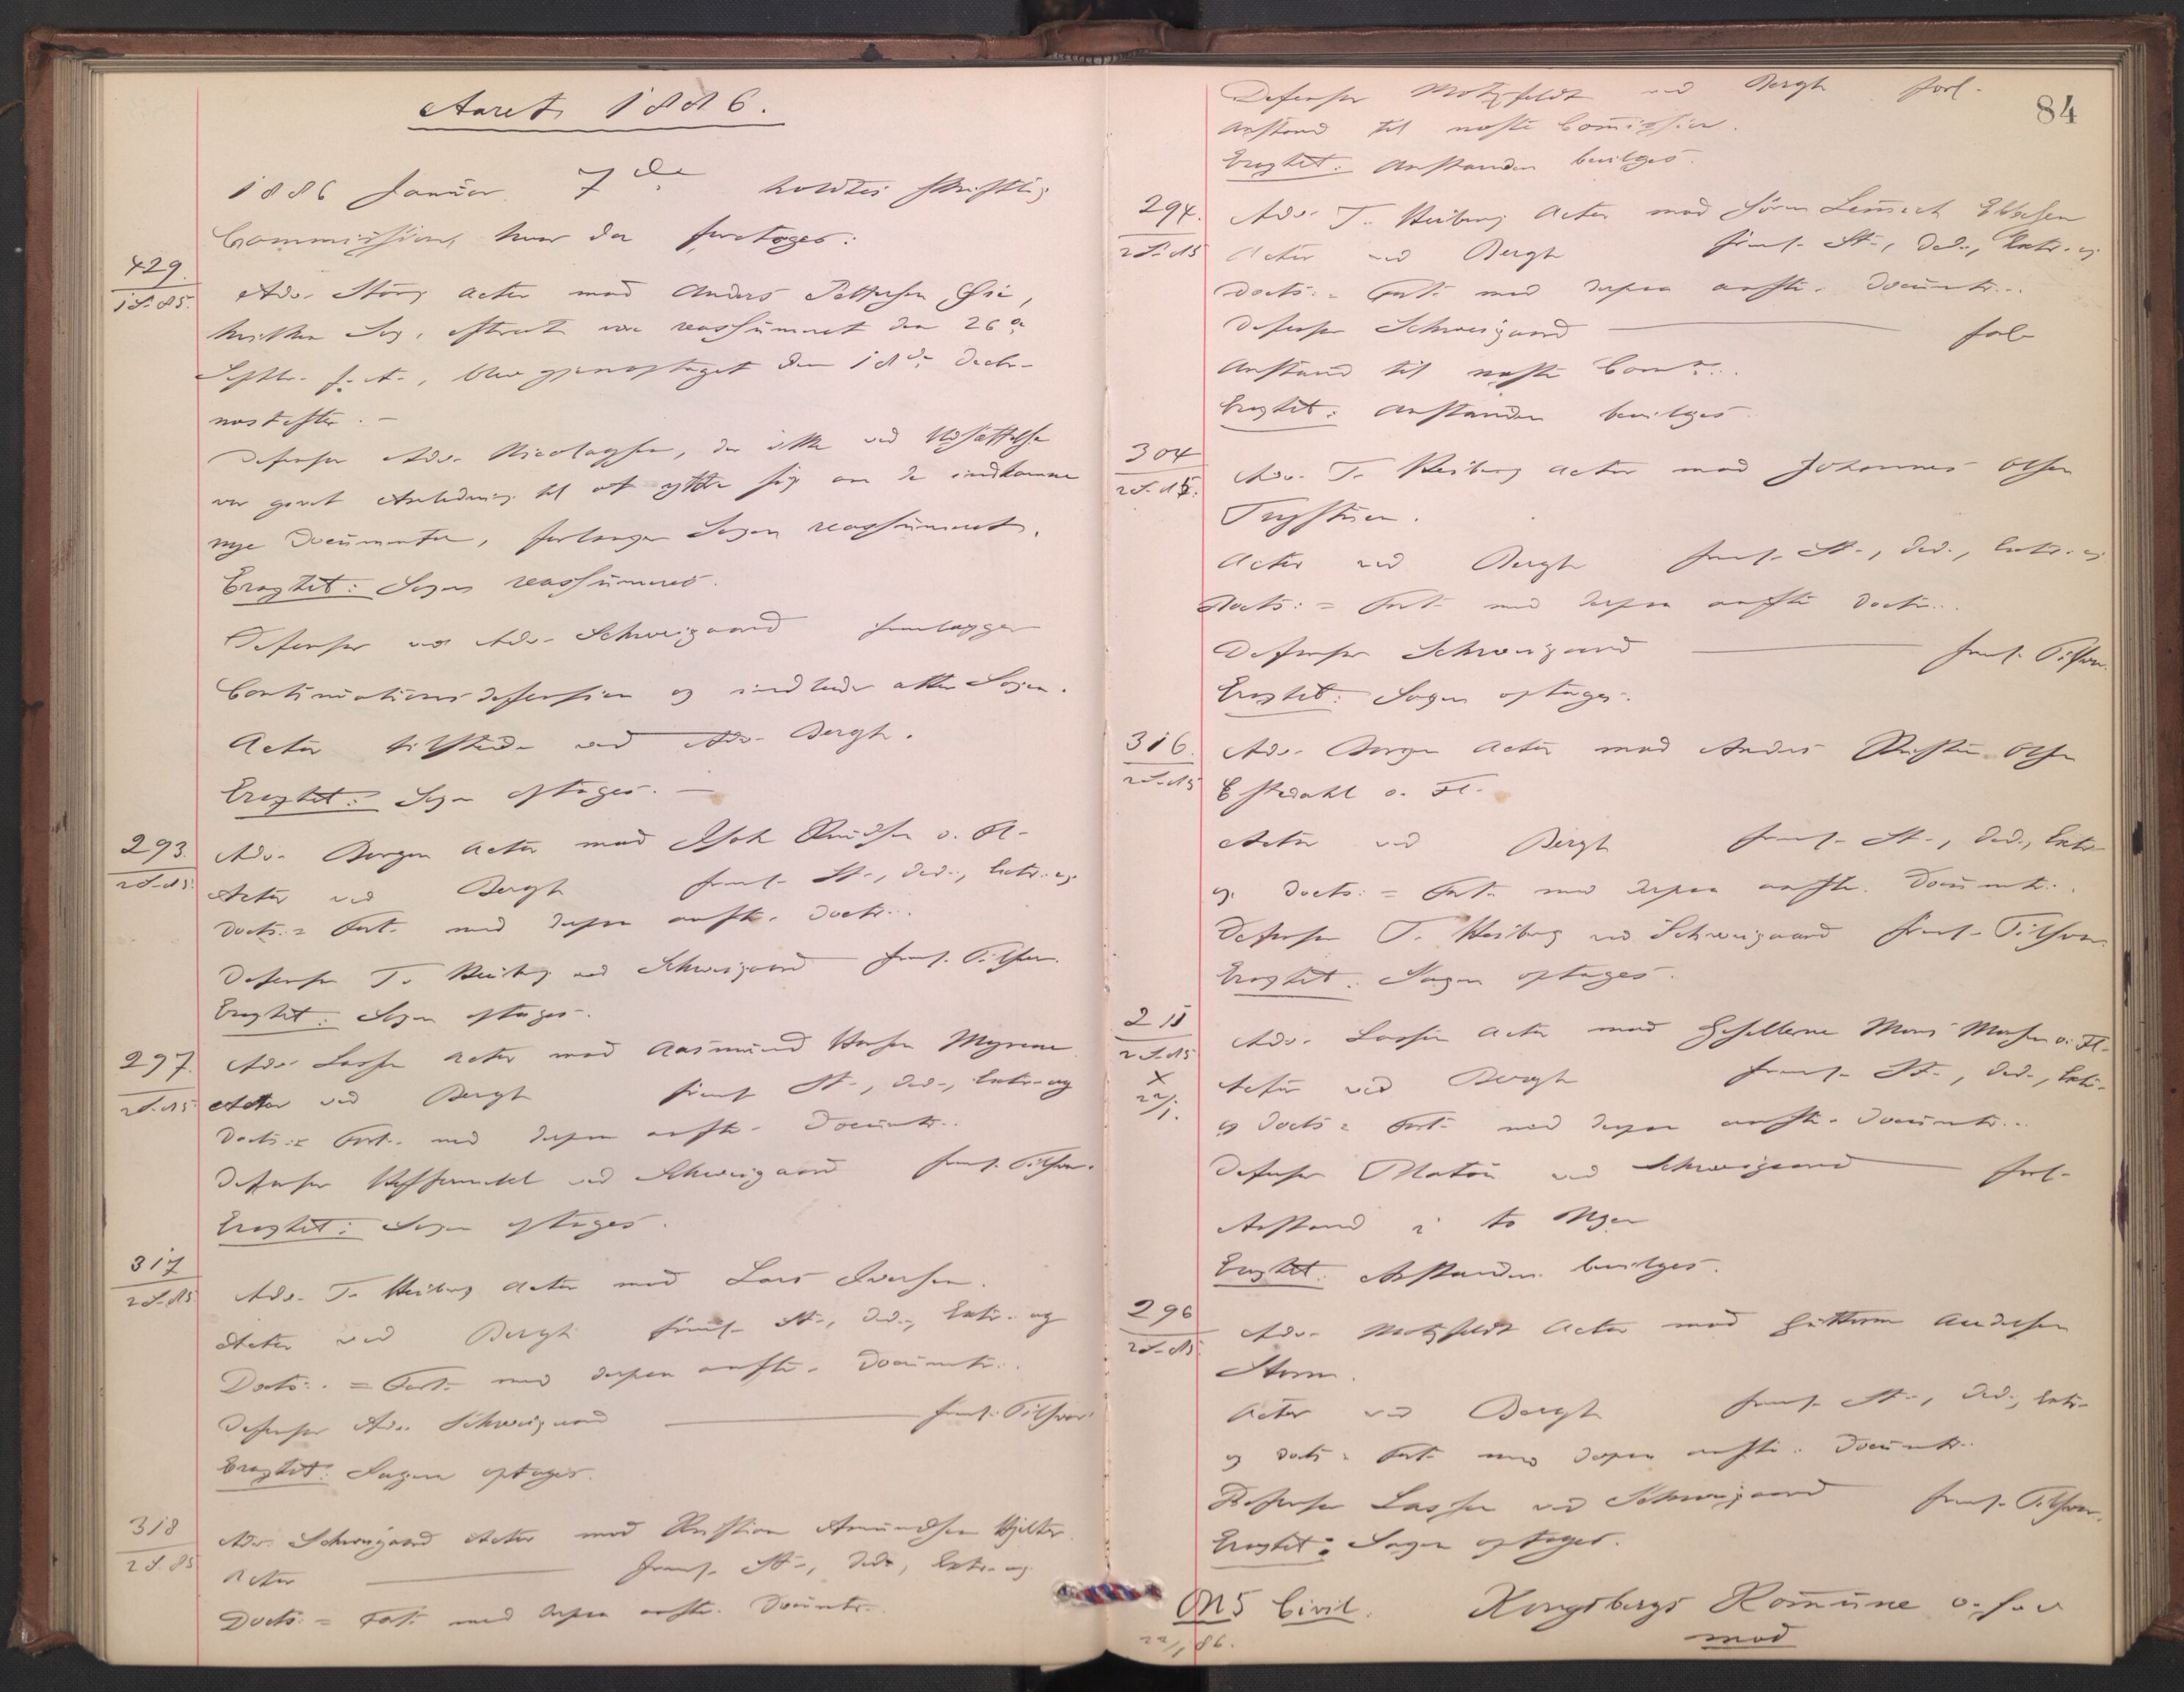 Aaret 1886.
1886 Januar 7de holdtes skriftlig
Commission, hvor da foretoges:
429
1 S. 85.
Adv. Stang Actor mod Anders Pettersen Øie,
hvilken Sag, efterat være reassumeret den 26de
Septbr. f. A., blev gjenoptaget den 18de Decbr.
næstefter. –
Defensor Adv. Nicolaysen, der ikke ved Udsættelse
var givet Anledning til at yttre sig om de indkomne
nye Documenter, forlanger Sagen reassumeret.
Eragtet: Sagen reassumeres.
Defensor ved Adv. Schweigaard fremlægger
Continuationsdefension og indlader atter Sagen.
Actor tilstede ved Adv. Bergh.
Eragtet: Sagen optages. –
293.
2 S. 85.
Adv. Borgen Actor mod Knudsen o. Fl.
Actor ved Bergh freml. St., Ded., Extr. og
Docts. = Fort. med derpaa anførte Doctr..
Defensor T. Heiberg ved Schweigaard freml. Tilsvar.
Eragtet: Sagen optages.
297.
2 S. 85
Adv. Lasson Actor mod Aasmund Hansen Myrene
Actor ved Bergh freml. St., Ded., Extr. og
Docts. = Fort. med derpaa anførte Documtr..
Defensor ved Schweigaard freml. Tilsvar.
Eragtet: Sagen optages.
317
2 S. 85
Adv. T. Heiberg Actor mod Lars Iversen.
Actor ved Bergh freml. St., Ded., Extr. og
Docts. = Fort. med derpaa anførte Documtr..
Defensor Adv. Schweigaard — freml. Tilsvar.
Eragtet: Sagen optages.
318
2 S. 85
Adv. Schweigaard Actor mod Kristian Amundsen
Actor — freml. St., Ded., Extr. og
Docts. = Fort. med derpaa anførte Documtr..
84
Defensor Motzfeldt ved Bergh forl.
Anstand til næste Commission.
Eragtet: Anstanden bevilges.
294.
2 S. 85
Adv. T. Heiberg Actor mod Søren Lemmich Ebbesen
Actor ved Bergh freml. St., Ded., Extr. og
Docts. = Fort. med derpaa anførte Documtr...
Defensor Schweigaard — forl.
Anstand til næste Comm..
Eragtet: Anstanden bevilges.
304
2 S. 85.
Adv. T. Heiberg Actor mod Johannes Olsen
Actor ved Bergh freml. St., Ded., Extr. og
Docts. = Fort. med derpaa anførte Doctr..
Defensor Schweigaard — freml. Tilsvar.
Eragtet: Sagen optages.
316.
2 S. 85
Adv. Borgen Actor mod Anders Kristian Olsen
o. Fl.
Actor ved Bergh freml. St., Ded., Extr.
og Docts. = Fort. med derpaa anførte Documtr..
Defensor T. Heiberg ved Schweigaard freml. Tilsvar.
Eragtet: Sagen optages.
211
2 S. 85
X
22/1.
Adv. Lasson Actor mod Gesellerne Mons Monsen o. Fl.
Actor ved Bergh freml. St., Ded., Extr.
og Docts = Fort. med derpaa anførte Documtr...
Defensor Platou ved Schweigaard — forl.
Anstand i to Uger
Eragtet: Anstanden bevilges.
296
2 S. 85.
Adv. Motzfeldt Actor mod Guttorm Andersen
Storm.
Actor ved Bergh freml. St., Ded., Extr.
og Docts = Fort. med derpaa anførte Documtr..
Defensor Lasson ved Schweigaard freml. Tilsvar.
Eragtet: Sagen optages.
Civil. Kongsbergs Kommune
22/1 86.
mod